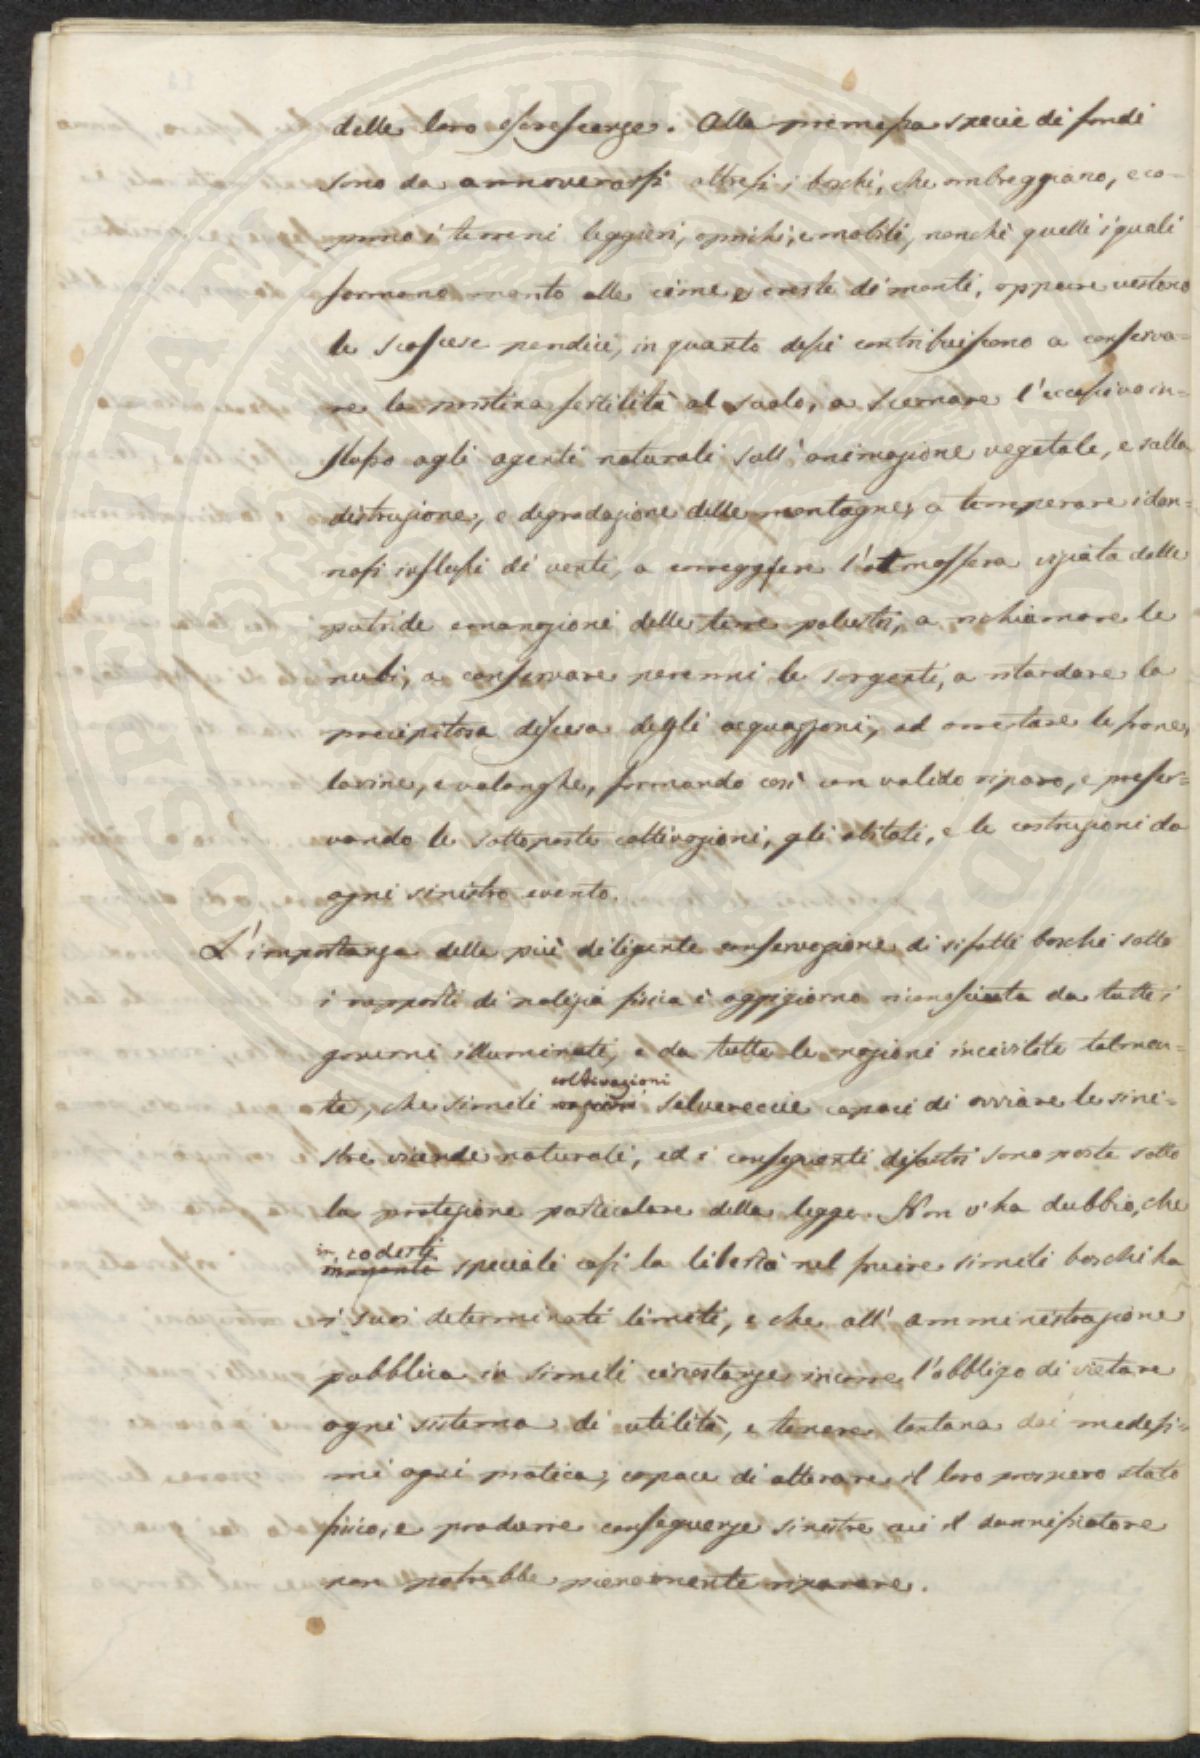 delle loro escrescenze. Alla premessa specie di fondi
sono da annoverarsi altresì i boschi, che ombreggiano, e co-
prono i terreni leggieri, aprichi, e mobili, nonchè quelli i quali
formano manto alle cime e creste di monti, oppure vestono
le scoscese pendici, in quanto dessi contribuiscono a conserva-
re la pristina fertilità al suolo, a scemare l'eccessivo in-
flusso agli agenti naturali sull'animazione vegetale, e sulla
distruzione, e degradazione delle montagne, a temperare i dan-
nosi influssi di venti, a correggere l'atmosfera viziata dalle
putride emanazioni delle terre palustri, a richiamare le
nubi, a conservare perenni le sorgenti, a ritardare la
precipitosa discesa degli acquazzoni, ad arrestare le frane,
lavine, e valanghe, formando così un valido riparo, e preser-
vando le sottoposte coltivazioni, gli abitati, e le costruzioni da
ogni sinistro evento.
L'importanza della più diligente conservazione di sifatti boschi sotto
i rapporti di polizia fisica è oggigiorno riconosciuta da tutti i
governi illuminati, e da tutte le nazioni incivilite talmen-
coltivazioni
te, che simili silvereccie capaci di ovviare le sini-
stre vicende naturali, ed i conseguenti disastri sono poste sotto
la protezione particolare della legge. Non v'ha dubbio, che
in codesti
speciali casi la libertà nel fruire simili boschi ha
i suoi determinati limiti, e che all'amministrazione
pubblica in simili circostanze incorre l'obbligo di vietare
ogni sistema di utilità, e tenere lontana dai medesi-
mi ogni pratica, capace di alterare il loro prospero stato
fisico, e produrre conseguenze sinistre cui il dannificatore
non potrebbe pienamente riparare.
PROSPERITATI PUBLICAE